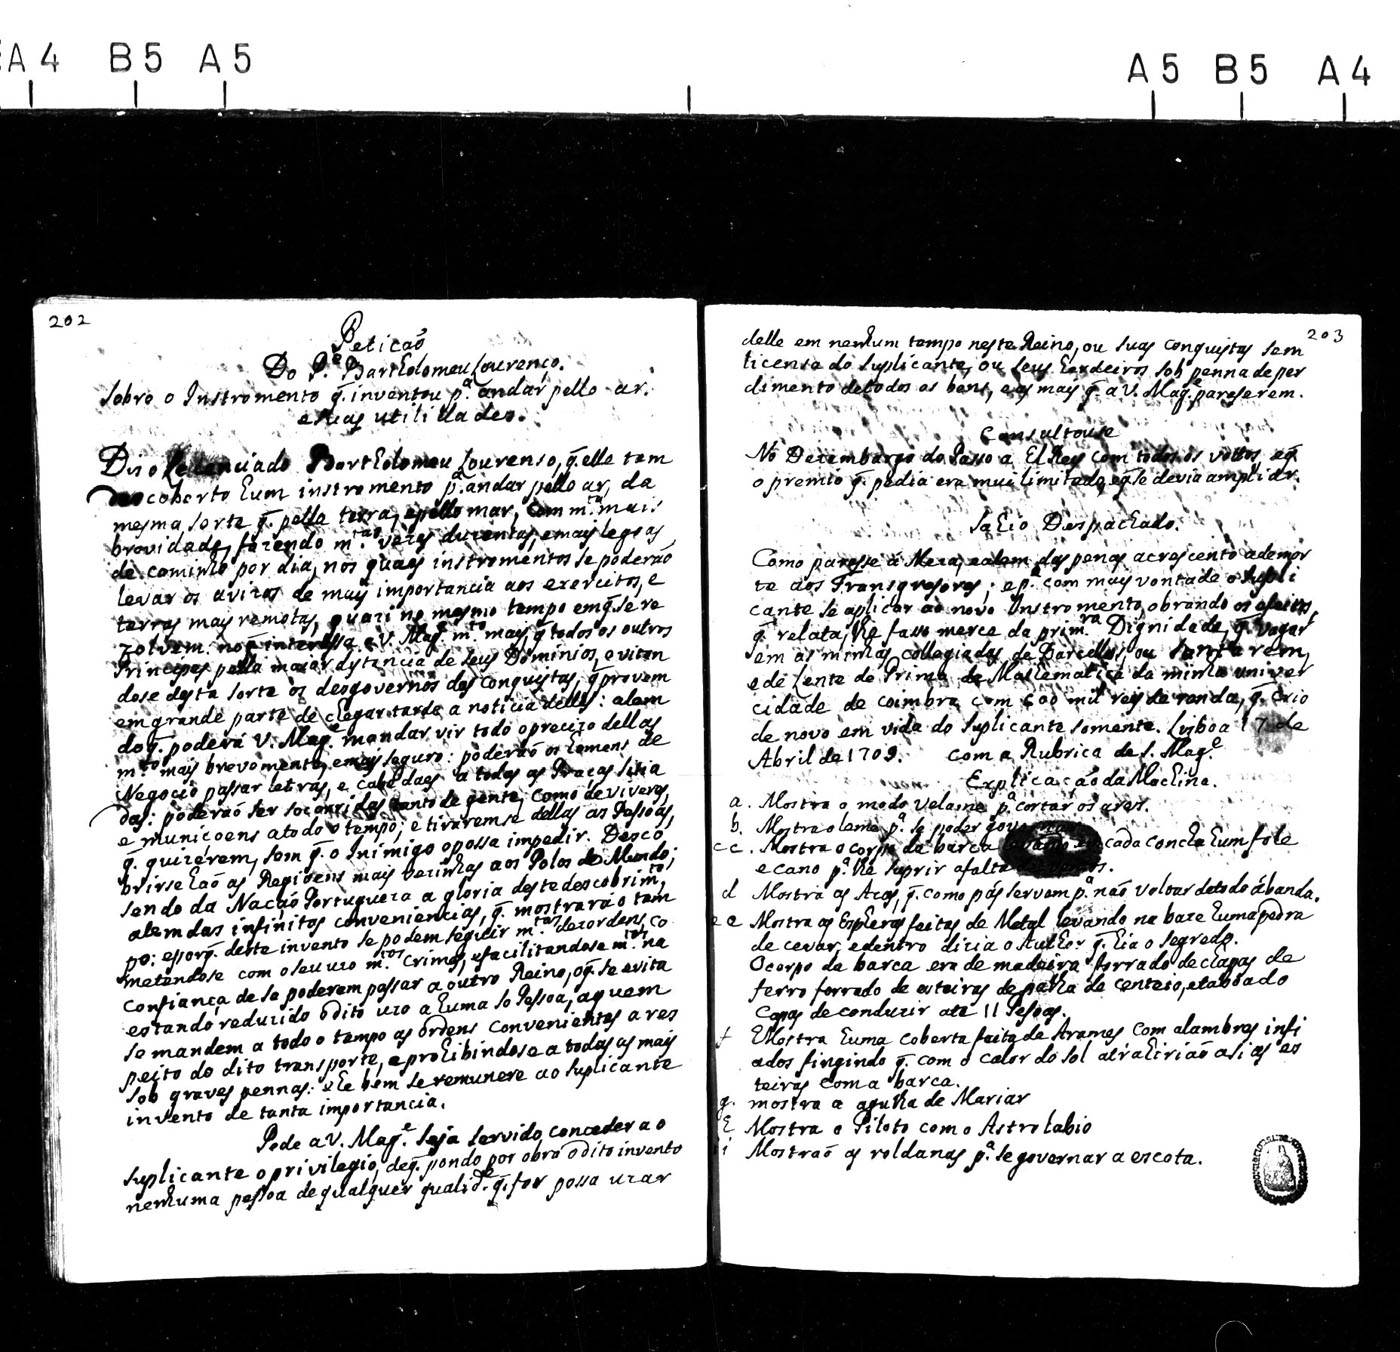 A4 B5 A5
A5 B5 A4
202
Petição
Do P.e Bartholomeu Lourenço.
sobre o Instromento q̃. inventou p.a andar pello ar.
e suas utilidades.
Diz o Lecenciado Bartholomeu Lourenso, q̃. elle tem
descoberto hum instromento p.a andar pello ar, da
mesma sorte q̃. pella terra, e pello mar, com m.ta mais
brevidade, fazendo m.tas vezes duzentas, e mais legoas
de caminho por dia, nos quaes instromentos se poderão
levar os avizos de mais importancia aos exercitos, e
terras mais remotas, quazi no mesmo tempo em q̃. se re
zolvem: no q̃ interessa a V. Mag.e m.to mais q̃ todos os outros
Principes pella maior distancia de seus Dominios, evitan
dose desta sorte os desgovernos das Conquistas, q̃ provem
em grande parte de chegar tarde a noticia delles: alem
do q̃. poderá V. Mag.e mandar vir todo o precizo dellas
m.to mais brevemente, e mais seguro: poderão os homens de
Negocio passar letras, e cabedaes a todas as Praças sitia
das: poderão ser socorridas tanto de gente, como de viveres,
e municoens a todo o tempo; e tiraremse dellas as Pessoas,
q̃. quizerem, sem q̃. o Inimigo o possa impedir. Desco
brirse hão as Regioens mais vezinhas aos Polos do Mundo;
sendo da Nação Portugueza a gloria deste descobrim.to,
alem das infinitas conveniencias, q̃. mostrará o tem
po: e porq̃. deste invento se podem seguir m.tas dezordens, co
metendose com o seu uzo m.tos crimes, e facilitandose m.tos na
confiança de se poderem passar a outro Reino, o q̃. se evita
estando reduzido o dito uzo a huma só Pessoa, a quem
se mandem a todo o tempo as ordens convenientes a res
peito do dito transporte, e prohibindose a todas as mais
sob graves pennas: e he bem se remunere ao suplicante
invento de tanta importancia.
Pede a V. Mag.e seja servido conceder ao
suplicante o privilegio, de q̃. pondo por obra o dito invento
nenhuma pessoa de qualquer qualid.e q̃. for possa uzar
203
delle em nenhum tempo neste Reino, ou suas conquistas sem
licensa do suplicante, ou seus herdeiros sob penna de per
dimento de todos os bens, e as mais q̃. a V. Mag.e pareserem.
Consultouse
No Dezembargo do Passo a El Rey com todos os vottos, e q̃
o premio q̃. pedia era mui limitado, e q̃ se devia ampliar.
Sahio Despachado.
Como parese á Meza, e alem das penas acrescento a de mor
te aos Transgresores; e p.a com mais vontade o supli
cante se aplicar ao novo Instromento, obrando os efeitos,
q̃. relata, lhe faso merce da prim.ra Dignidade, q̃. vagar
em as minhas collegiadas de Barcellos, ou Santarem,
e de Lente de Prima de Mathematica da minha univer
cidade de coimbra com 600 mil reis de renda, q̃. crio
de novo em vida do suplicante somente. Lisboa 17 de
Abril de 1709. Com a Rubrica de S. Mag.e
Explicação da Machina.
a. Mostra o modo velame p.a cortar os ares.
b. Mostra o leme p.a se poder
c c. Mostra o corpo da barca cada concha hum fole
e cano p.a lhe suprir a falta
d Mostra as Azas, q̃. como pás servem p.a não voltar de todo á banda.
e e Mostra as Espheras feitas de Metal levando na baze huma pedra
de cevar, e dentro dizia o Author q̃. hia o segredo.
O corpo da barca era de madeira forrado de chapas de
ferro forrado de esteiras de palha de centeio, e taboado
Capas de conduzir até 11 Pesoas.
f Mostra huma coberta feita de Arames com alambres infi
ados fingindo q̃. com o calor do sol atrahirião a si as es
teiras com a barca.
g. mostra a agulha de Mariar
h Mostra o Piloto com o Astrolabio
i Mostrão as roldanas p.a se governar a escota.